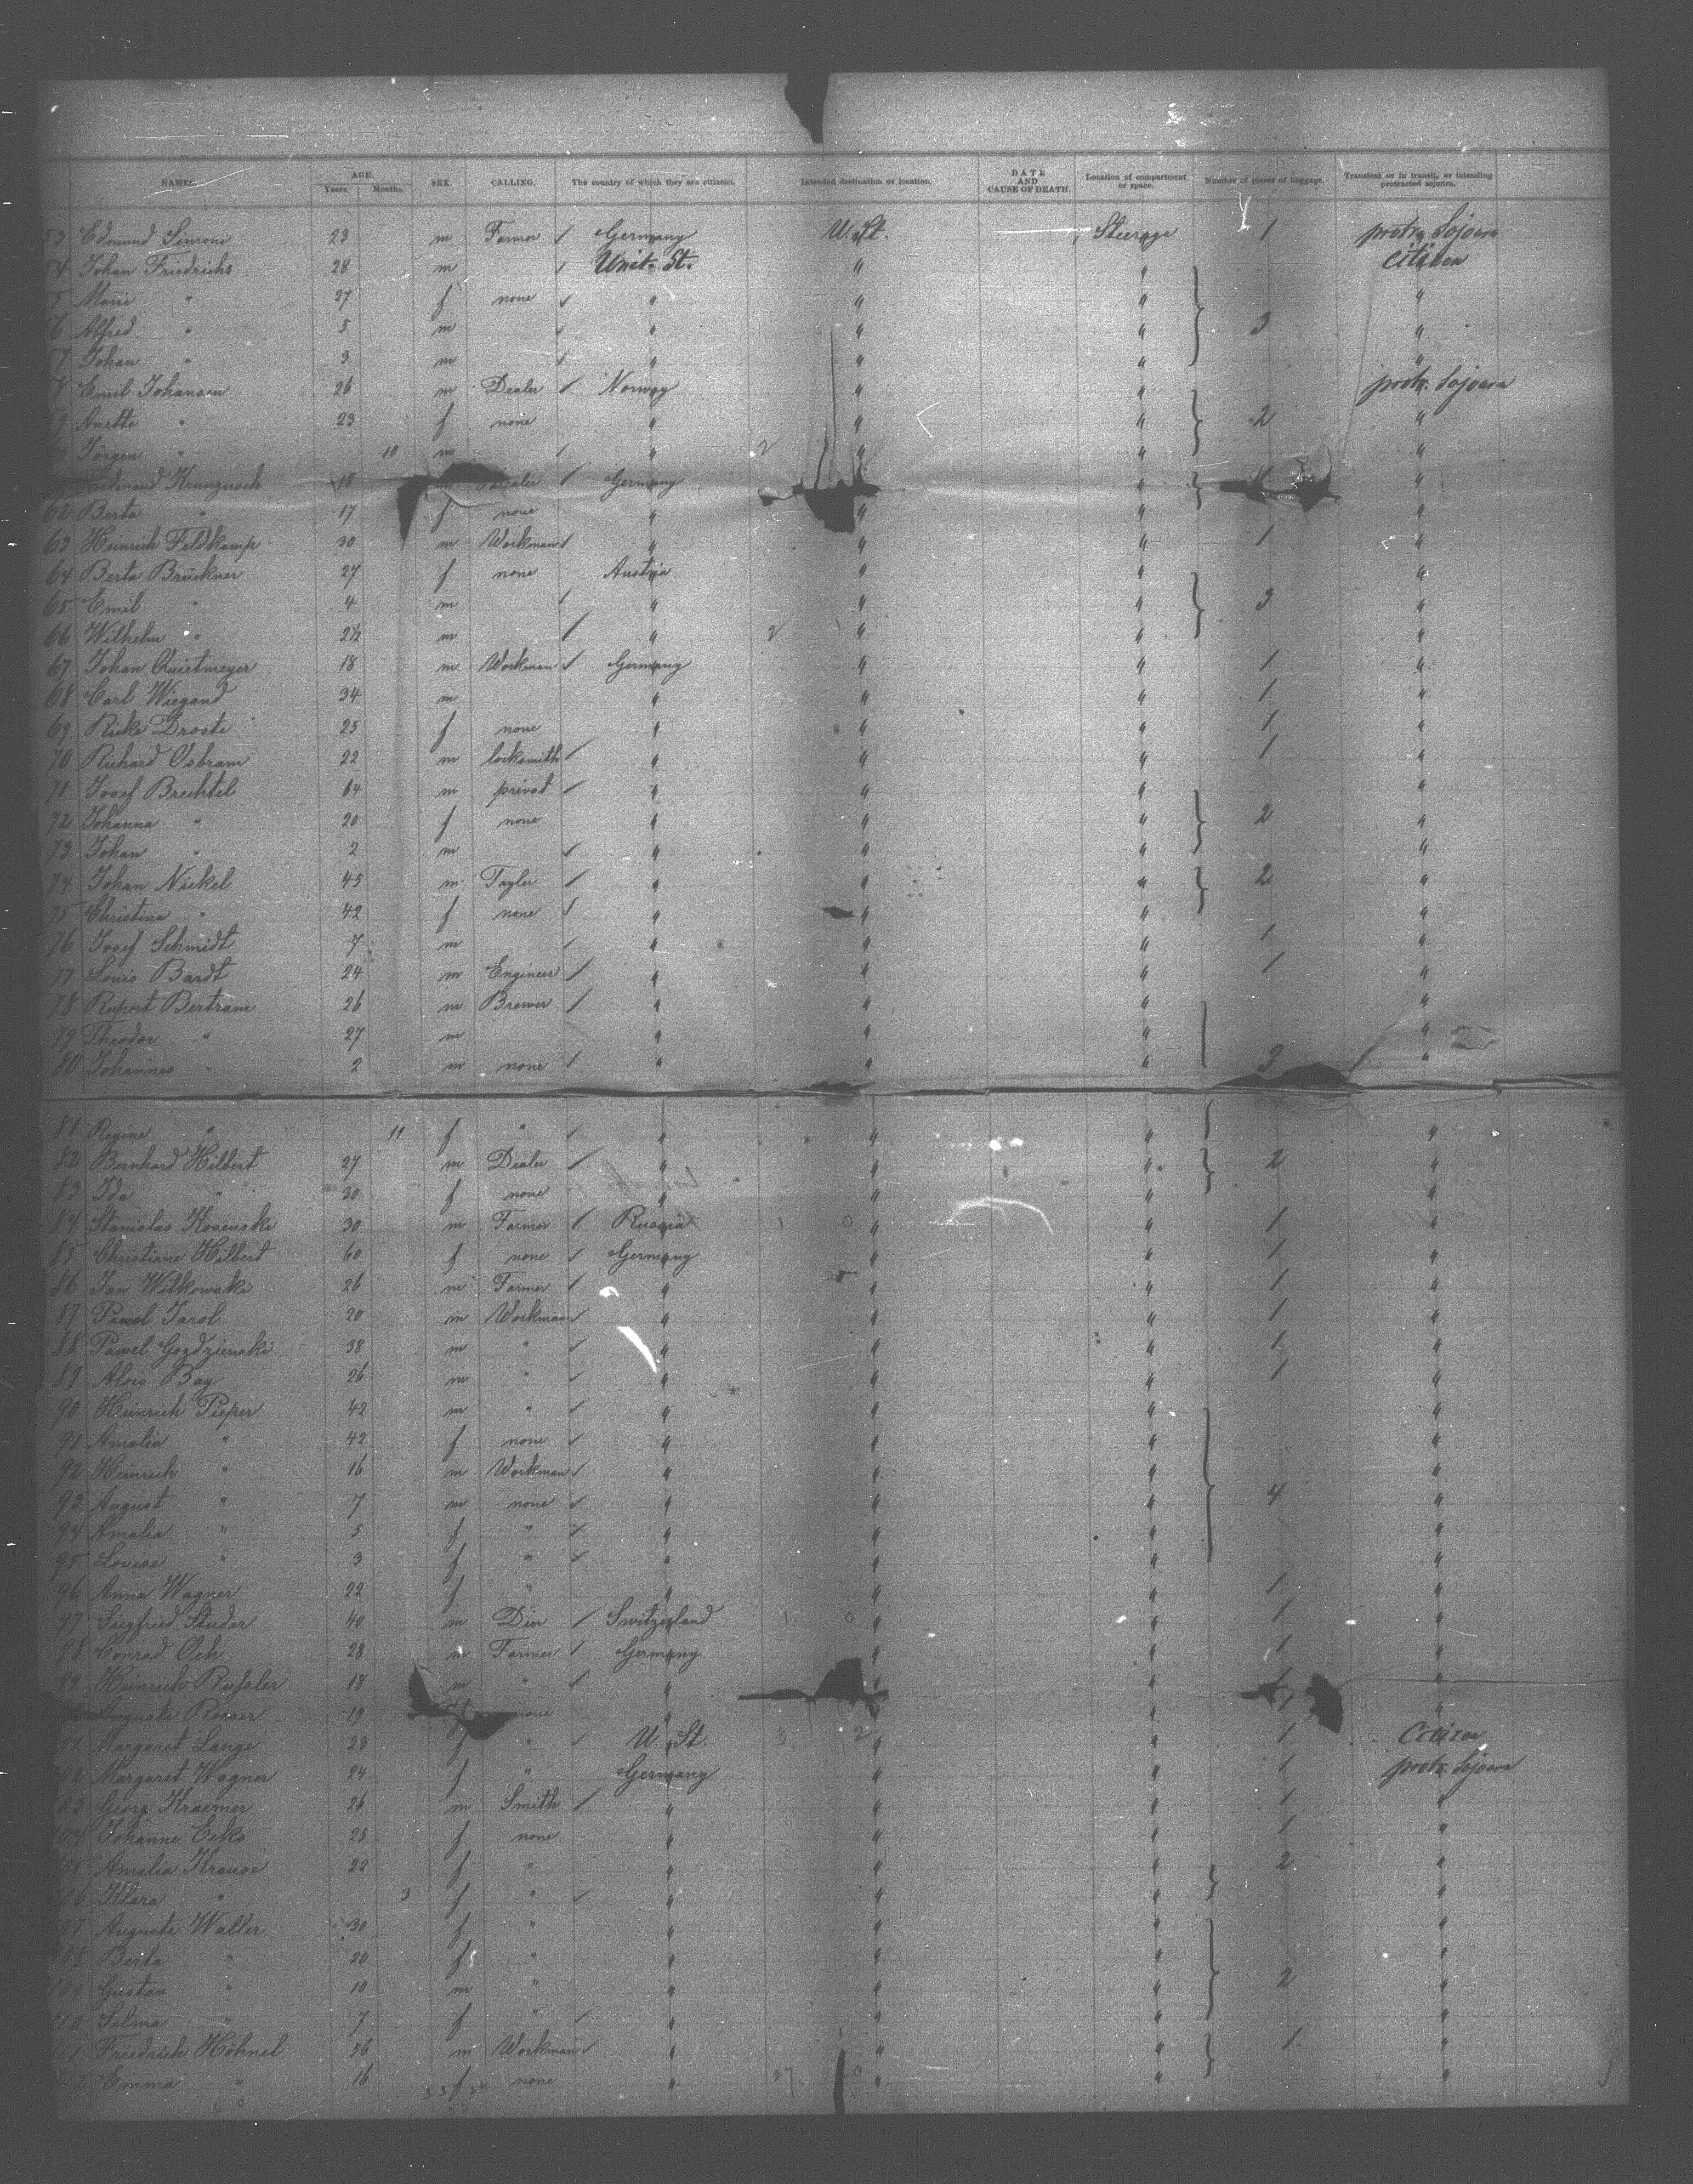 NAMES. AGE. Years. Months. SEX. CALLING. The country of which they are citizens. Intended destination or location. DATE AND CAUSE OF DEATH. Location of compartment or space. Number of pieces of baggage. Transient or in transit, or intending protracted sojourn.
53 Edmund Simoni 23 m Farmer Germany U. St. Steerage 1 protr. Sojourn
54 Johan Friedrichs 28 m Unit. St. " " Citizen
55 Marie " 27 f none " " " "
56 Alfred " 5 m " " " 3 "
57 Johan " 3 m " " " "
58 Emil Johansen 26 m Dealer Norway " " protr. Sojourn
59 Anette " 23 f none " " " 2 "
Jörgen " 10 m " " "
Ferdinand 18 m Dealer Germany " " "
62 Berta " 17 f none " " " "
63 Heinrich Feldkamp 30 m Workman " " " 1 "
64 Berta Brückner 27 f none Austria " " "
65 Emil " 4 m " " " 3 "
66 Wilhelm " 2½ m " 2 " " "
67 Johan Quietmeyer 18 m Workman Germany " " 1 "
68 Carl Wiegand 34 m " " " 1 "
69 Rieke Droste 25 f none " " " 1 "
70 Richard Osbram 22 m locksmith " " " 1 "
71 Josef Brechtel 64 m privat " " " "
72 Johanna " 20 f none " " " 2 "
73 Johan " 2 m " " " "
74 Johan Nickel 45 m Tayler " " " 2 "
75 Christine " 42 f none " " " "
76 Josef Schmidt 7 m " " " 1 "
77 Louis Bardt 24 m Engineer " " " 1 "
78 Rupert Bertram 26 m Brewer " " " "
79 Theodor " 27 m " " " "
80 Johannes " 2 m none " " " 3 "
81 Regine " 11 f " " " " "
82 Bernhard Hilbert 27 m Dealer " " " 2 "
83 Ida " 30 f none " " " "
84 Stanislas Kosenski 30 m Farmer Russia 1 0 " 1 "
85 Christiane Hilbert 60 f none Germany " " 1 "
86 Jan Witkowski 26 m Farmer " " " 1 "
87 Pawel Jarol 20 m Workman " " " 1 "
88 Pawel Gozdzienski 38 m " " " " 1 "
89 Alois Bay 26 m " " " " 1 "
90 Heinrich Pieper 42 m " " " " "
91 Amalia " 42 f none " " " "
92 Heinrich " 16 m Workman " " " "
93 August " 7 m none " " " 4 "
94 Amalia " 5 f " " " " "
95 Louise " 3 f " " " " "
96 Anna Wagner 22 f " " " " 1 "
97 Siegfried Studer 40 m Dier Switzerland 1 0 " 1 "
98 Conrad Och 28 m Farmer Germany " " 1 "
99 Heinrich Russler 18 m " " " " 1 "
Auguste Roeser 19 none " " " 1 "
Margaret Lange 23 f " U. St. 3 2 " " 1 Citizen
Margaret Wagner 24 f " Germany " " 1 protr. Sojourn
103 Georg Kraemer 26 m Smith " " " 1 "
104 Johanne Eeks 25 f none " " " 1 "
105 Amalia Krause 22 f " " " " 2 "
106 Klara " 3 f " " " " "
107 Auguste Waller 30 f " " " " "
108 Berta " 20 f " " " " "
109 Gustav " 10 m " " " " 2 "
110 Selma " 7 f " " " " "
111 Friedrich Höhnel 56 m Workman " " " 1 "
112 Emma " 16 f none " 27 " " "